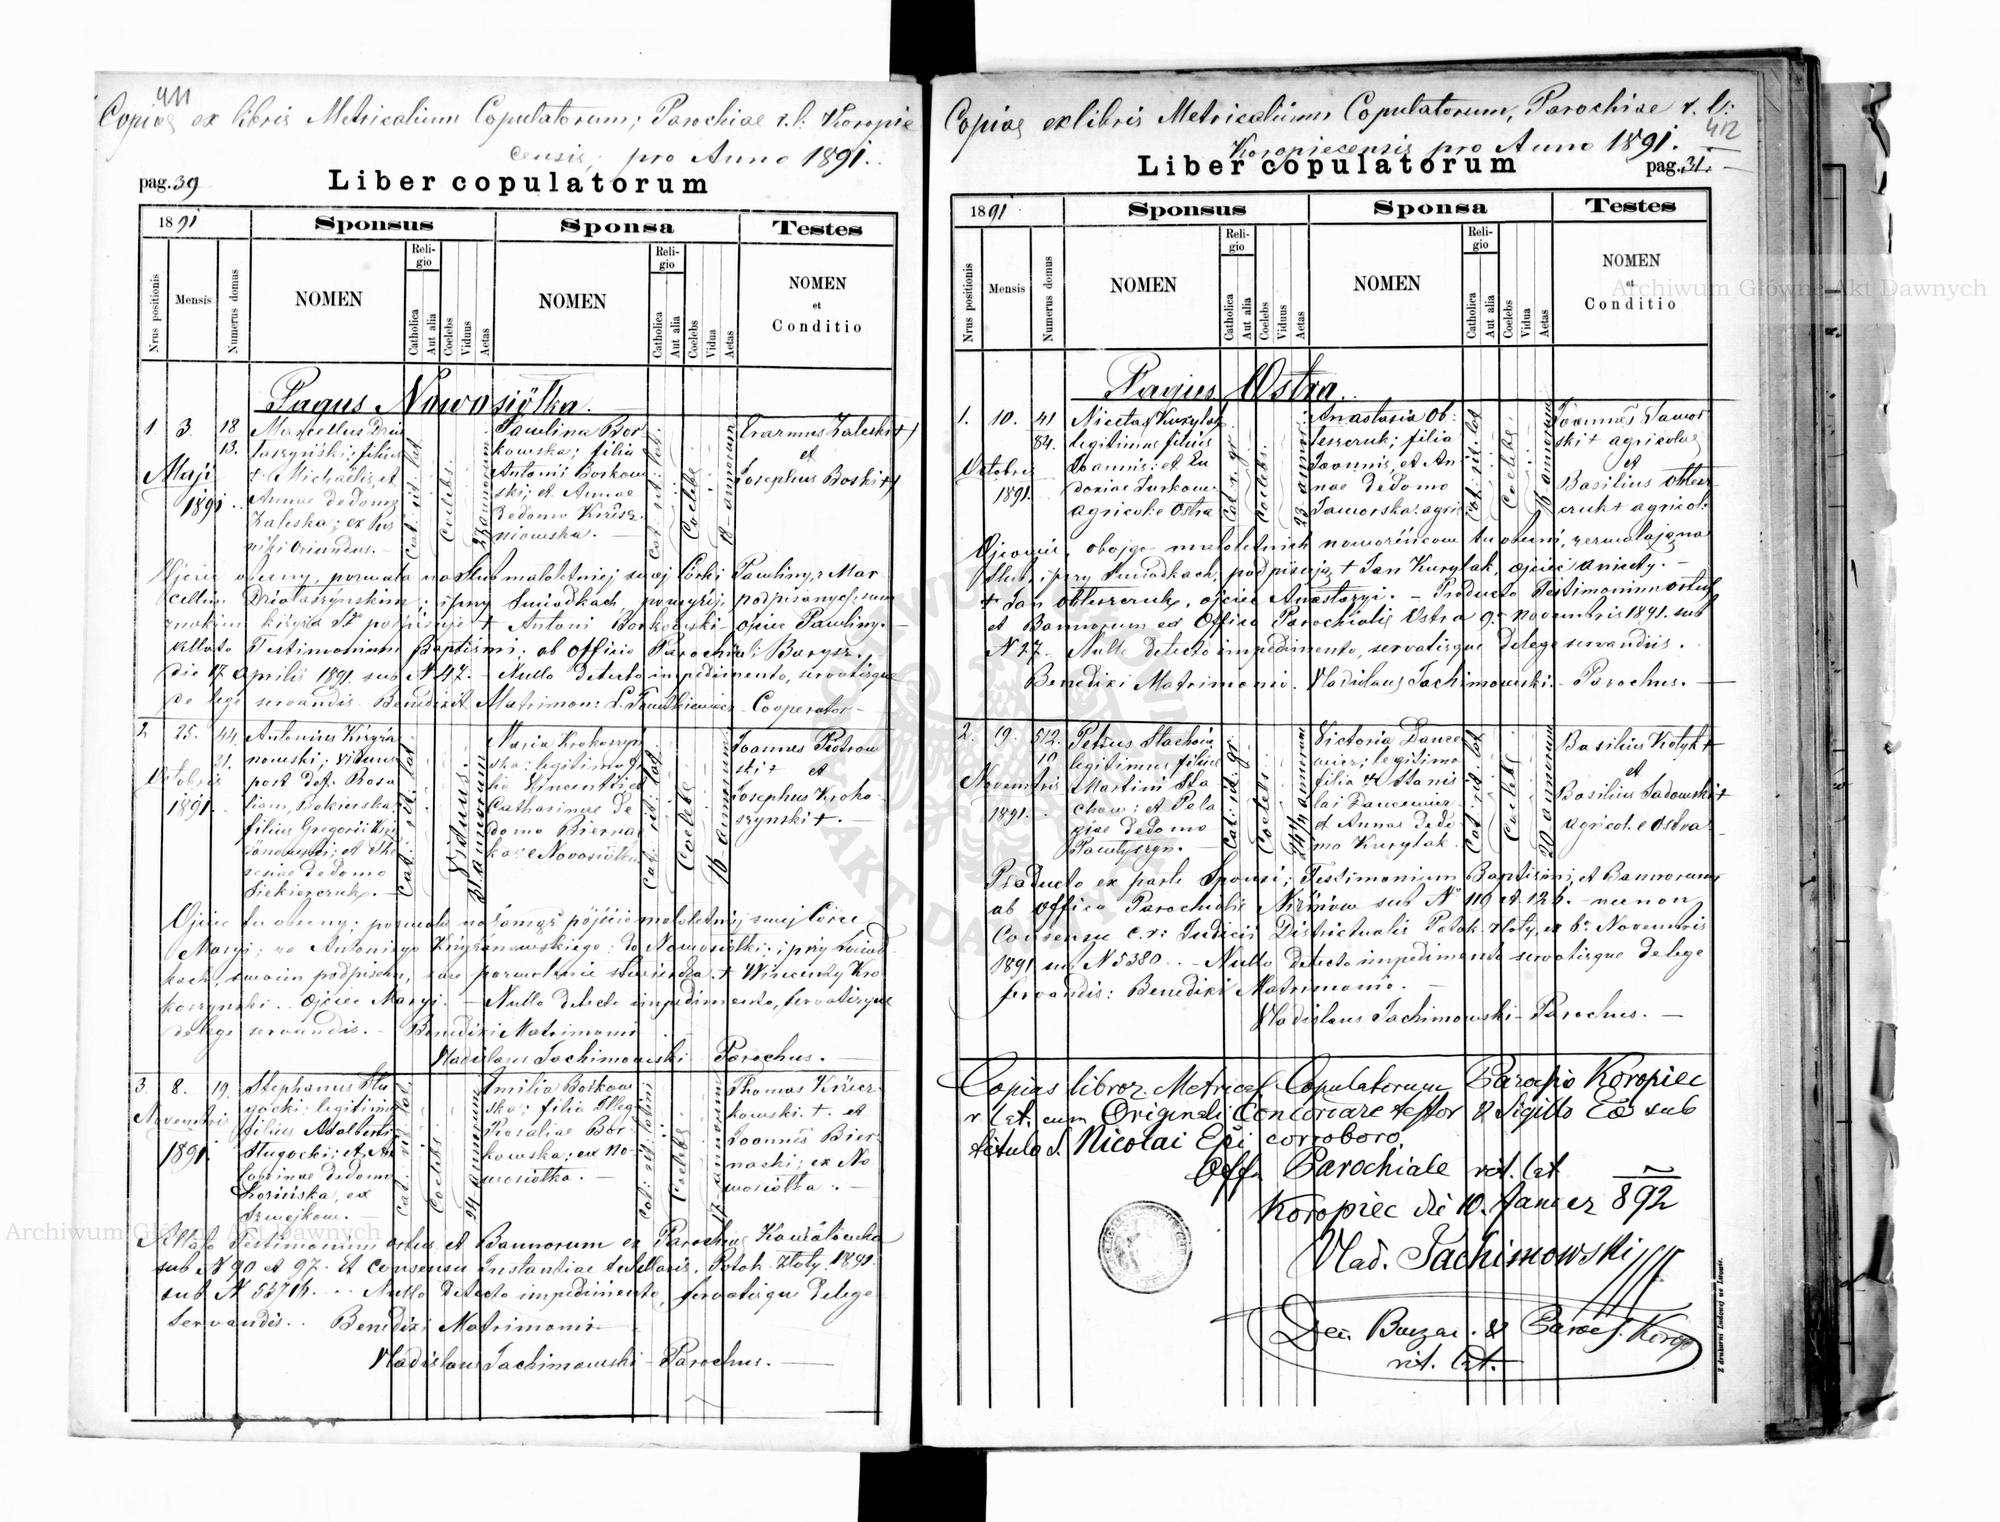 411
Copias ex libris Metricalium Copulatorum; Parochiae r. l: Koropie
censis, pro Anno 1891.
pag. 39
Liber copulatorum
1891
Sponsus
Sponsa
Testes
Nrus positionis
Mensis
Numerus domus
NOMEN
Religio
Catholica
Aut alia
Coelebs
Viduus
Aetas
NOMEN
Religio
Catholica
Aut alia
Coelebs
Vidua
Aetas
NOMEN
et
Conditio
Pagus Nowosiółka.
1. 3. Maji 1891
18
13.
Marcellus Dzia
taszyński; filius
+ Michaëlis, et
Annae de domo
Zaleska; ex
oriundus. —
Cat. rit. lat.
Coelebs.
annorum
Paulina Bor
kowska; filia
Antoni Borkow
ski; et Annae
de domo
niowska. —
Cat. rit. lat.
Coelebs
18 annorum
Erazmus Zaleski +
et
Josephus Boski +
Ojciec obecny, pozwala na ślub małoletniej swej córki Pauliny, z Mar
cellim Działaszyńskim; i przy świadkach, powyżej podpisanych, swym
znakiem krzyża Sgo podpisuje + Antoni Borkowski – ojciec Pauliny. –
Allato Testimonium Baptismi; ab Officio Parochiali Barysz.
die 17 Aprilis 1891 sub N 47. – Nullo detecto impedimento, servatisque
de lege servandis Benedixit Matrimon: Cooperator –
2. 25. Octobris 1891.
44.
31.
Antonius Krzyża
nowski; viduus
post def. Rosa
liam,
filius Gregorii Krzy
żanowski; et The
resae de domo
Cat. rit. lat.
Viduus.
annorum
Maria Krokoszyń
ska: legitima fi
lia Vincentii et
Catharinae de
domo Bierna
ka: e Nowosiółka
Cat. rit. lat
Coelebs
16 annorum
Joannes Piotrow
ski + et
Josephus Kroko
szynski +. –
Ojciec tu obecny; pozwala na zamąż pójście małoletniej swej Córce
Maryi; za Antoniego Krzyżanowskiego: do Nowosiółki: i przy świad
kach, swoim podpisem, swe pozwolenie stwierdza. + Wincenty Kro
koszynski. Ojciec Maryi. – Nullo detecto impedimento, servatisque
de lege servandis. – Benedixi Matrimoni
Vladislaus Jachimowski Parochus. –
3. 8. Novembris 1891.
19.
Stephanus Słu
gocki; legitimus
filius Adalberti
Sługocki; et
de domo
ex
Cat. rit. lat.
Coelebs
24 annorum
Emilia Borkow
ska; filia Illeg.
Rosaliae Bor
kowska; ex No
wosiółka. –
Cat: rit: latini
Coelebs
17 annorum
Thomas
kowski +. et
Joannes Bier
nacki; ex No
wosiółka. –
Allato Testimonium ortus et Bannorum ex Parochia
sub N 90 et 97. et consensu Instantiae tutellaris. Potok Złoty. 1891.
sub N Nullo detecto impedimento, servatisque de lege
servandis.. Benedixi Matrimoni –
Vladislaus Jachimowski – Parochus. –
Copias ex libris Metricalium Copulatorum, Parochiae r. l:
412
Koropiecensis pro Anno 1891.
Liber copulatorum
pag. 31.
1891
Sponsus
Sponsa
Testes
Nrus positionis
Mensis
Numerus domus
NOMEN
Religio
Catholica
Aut alia
Coelebs
Viduus
Aetas
NOMEN
Religio
Catholica
Aut alia
Coelebs
Vidua
Aetas
NOMEN
et
Conditio
Pagus Ostra.
1. 10. Octobris 1891.
41
84.
Nicetas Kurylak
legitimus filius
Joannis: et Eu
doxiae
agricolae Ostra
Cat r. gr
Coelebs.
23 annorum
Anastasia Ob
leszczuk; filia
Joannis, et An
nae de domo
Jaworska: agric
Cat. rit. lat
Coelebs
16 annorum
Joannes Jawor
ski + agricolae
et
Basilius
+ agricol:
Ojcowie, obojga małoletnich noworzeńców tu obecni, zezwalają na
ślub, i przy świadkach, podpisują + Jan Kurylak, ojciec –
+ Jan Obleszczuk, ojciec Anastazyi. – Producto Testimonium ortus
et Bannorum ex Officio Parochialis Ostra 9. Novembris 1891. sub
N 27 – Nullo detecto impedimento, servatisque de lege servandis.
Benedixi Matrimonio. Vladislaus Jachimowski. – Parochus. –
2. 19. Novembris 1891.
512.
10
Petrus Stachów
legitimus filius
Martini Sta
chow: et Pela
giae de domo
Pawłyszyn. –
Cat. rit. gr
Coelebs.
24 1/4 annorum
Victoria Dance
wicz; legitima
filia Stanis
lai Dancewicz
et Annae de do
mo Kurylak.
Cat. rit. lat
Coelebs
20 annorum
Basilius Kotyk +
et
Basilius Sadowski +
agricol. e Ostra
Producto ex parte Sponsi; Testimonium Baptismi, et Bannorum
ab Officio Parochialis Niżniów sub N 119 et 126. – necnon
Consensu c. r: Judicii Districtualis Potok złoty, ex Novembris
1891 sub N 5380.. – Nullo detecto impedimento servatisque de lege
servandis: Benedixi Matrimonio. –
Vladislaus Jachimowski – Parochus. –
Copias libror. Metrical Copulatorum Koropiec
r. lat. cum Originali concordare testor & Sigillo sub
titulo S. Nicolai Epi corroboro.
Off. Parochiale rit. lat
Koropiec die 10. Januar 892
Vlad. Jachimowski
rit. lat.
Z drukarni Ludowej we Lwowie.
Archiwum Główne Akt Dawnych
Archiwum Główne Akt Dawnych